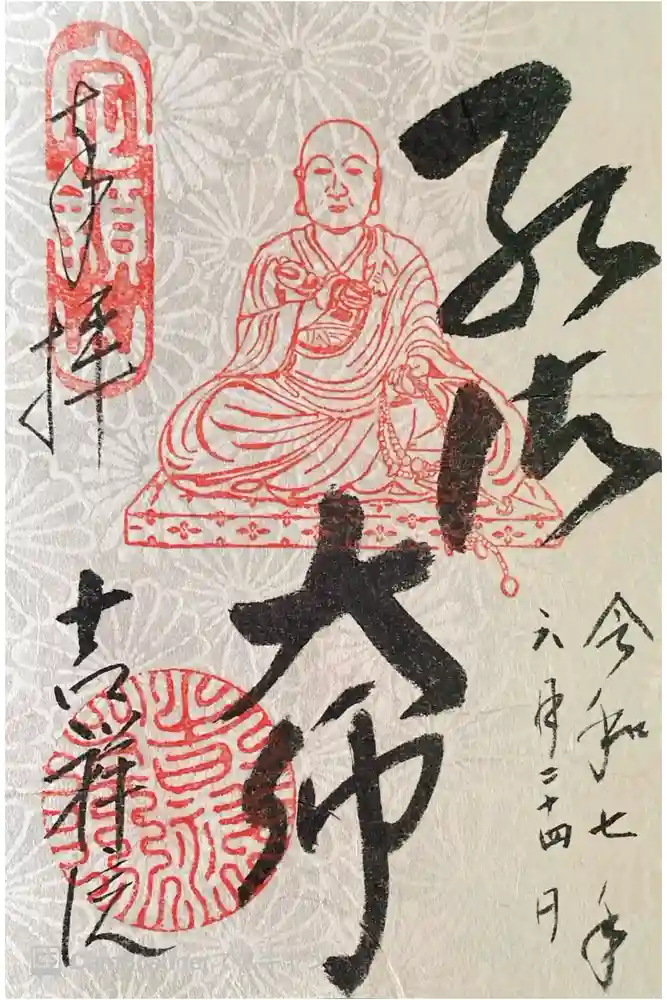 弘法大師
令和七年
六月二十四日
奉拝
吉祥院